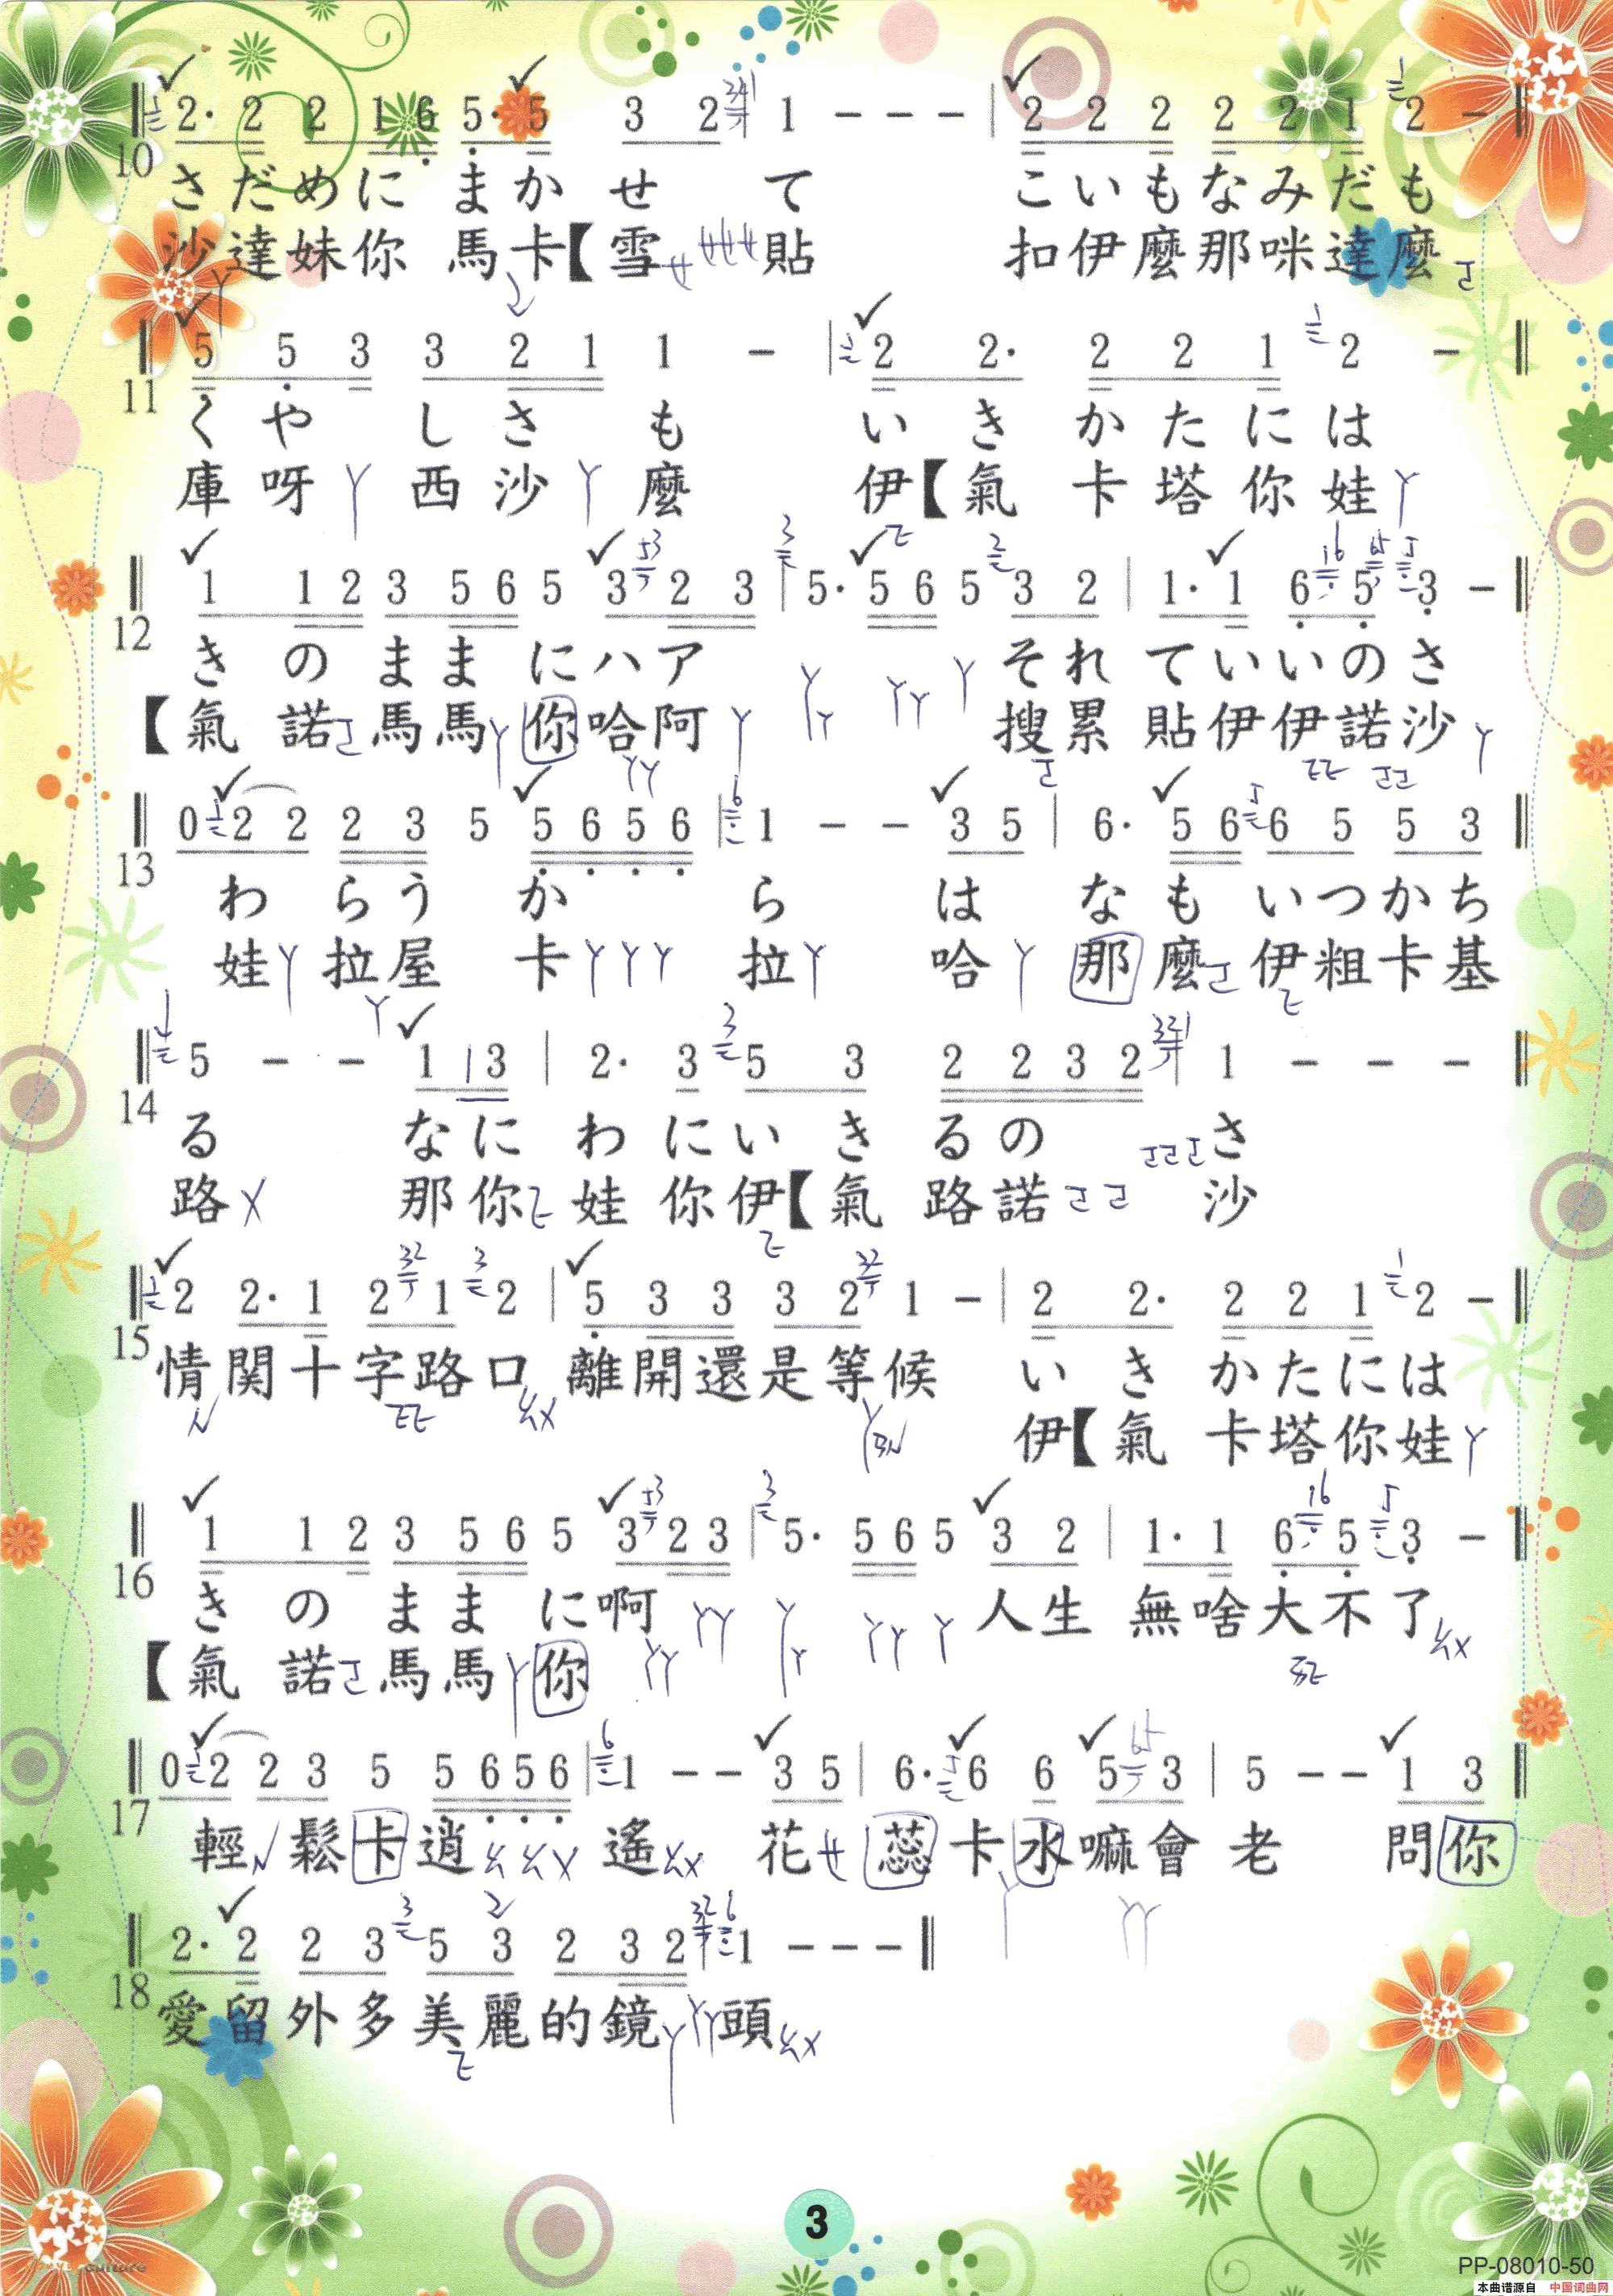 2· 2 2 1 6 5· 5 3 2 1 - - - | 2 2 2 2 2 1 2 -
10
さだめに まか せ て こいもなみだも
沙達妹你 馬卡【雪 貼 扣伊麼那咪達麼
5 5 3 3 2 1 1 - | 2 2· 2 2 1 2 -
11
くや しさ も いき かたには
庫呀ㄚ西沙ㄚ麼 伊【氣 卡塔你娃ㄚ
1 1 2 3 5 6 5 3 2 3 | 5· 5 6 5 3 2 | 1· 1 6 5 3 -
12
き の まま にハア それ ていいのさ
【氣 諾ㄛ馬馬ㄚ你哈阿ㄚ 搜累 貼伊伊諾沙ㄚ
0 2 2 2 3 5 5 6 5 6 | 1 - - 3 5 | 6· 5 6 6 5 5 3
13
わ らう か ら は なも いつかち
娃ㄚ拉屋 卡ㄚㄚㄚ 拉ㄚ 哈ㄚ那麼ㄛ伊粗卡基
5 - - 1 1 3 | 2· 3 5 3 2 2 3 2 | 1 - - -
14
る なに わ にい き るの さ
路ㄨ 那你ㄧ 娃 你伊【氣 路諾ㄛㄛ 沙
2 2· 1 2 1 2 | 5 3 3 3 2 1 - | 2 2· 2 2 1 2 -
15
情関十字路口 離開還是等候 いき かたには
伊【氣 卡塔你娃ㄚ
1 1 2 3 5 6 5 3 2 3 | 5· 5 6 5 3 2 | 1· 1 6 5 3 -
16
き の まま に啊 人生 無啥大不了
【氣 諾ㄛ馬馬ㄚ你
0 2 2 3 5 5 6 5 6 | 1 - - 3 5 | 6· 6 6 5 3 | 5 - - 1 3
17
輕ㄣ鬆卡逍ㄠㄠㄨ 遙ㄠㄨ 花ㄝ蕊卡水嘛會 老 問你
2· 2 2 3 5 3 2 3 2 1 - - -
18
愛留外多美麗的鏡ㄚㄚㄚ頭ㄠㄨ
3
culture
PP-08010-50
本曲谱源自 中国词曲网